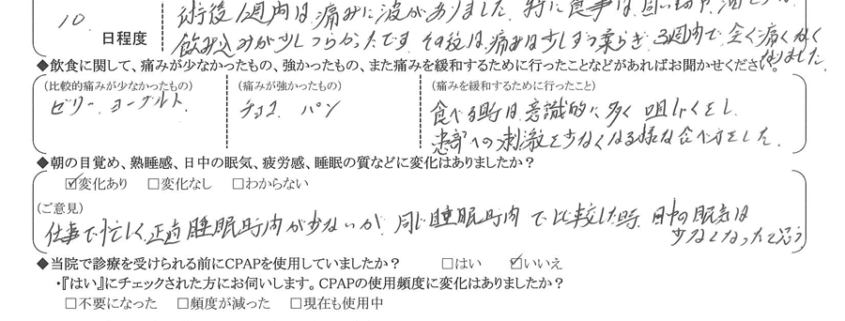 術後1週間内は痛みに波がありました。特に食事は
10 日程度
飲み込みが少しつらかったです。その後は、痛みは少しずつ柔らぎ、3週間で全く痛くなく
なりました。
◆飲食に関して、痛みが少なかったもの、強かったもの、また痛みを緩和するために行ったことなどがあればお聞かせください。
(比較的痛みが少なかったもの) (痛みが強かったもの) (痛みを緩和するために行ったこと)
ゼリー、ヨーグルト チョコ パン 食べる時は意識的に多く咀しゃくをし、
患部への刺激を少なくなる様な食べ方をした。
◆朝の目覚め、熟睡感、日中の眠気、疲労感、睡眠の質などに変化はありましたか?
☑変化あり □変化なし □わからない
(ご意見)
仕事で忙しく、正直睡眠時間が少ないが、同じ睡眠時間で比較した時、日中の眠気は
少なくなったと思う
◆当院で診療を受けられる前にCPAPを使用していましたか? □はい ☑いいえ
・『はい』にチェックされた方にお伺いします。CPAPの使用頻度に変化はありましたか?
□不要になった □頻度が減った □現在も使用中